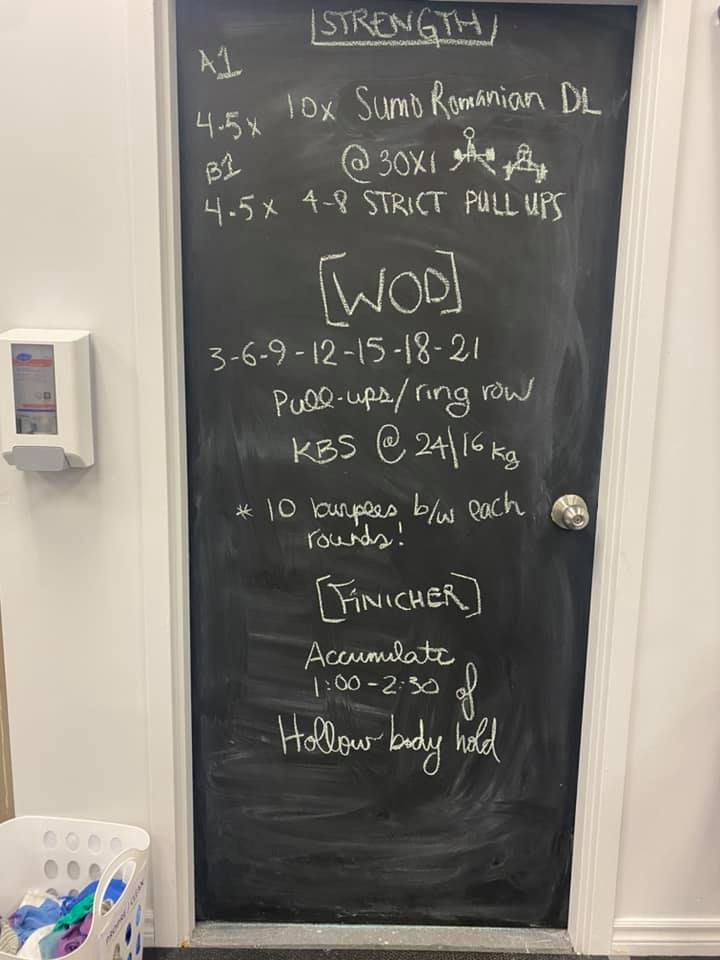 [STRENGTH]
A1
4-5x 10x Sumo Romanian DL
@ 30X1
B1
4-5x 4-8 STRICT PULL UPS
[WOD]
3-6-9-12-15-18-21
Pull-ups/ring row
KBS @ 24|16 kg
* 10 burpees b/w each
rounds!
[FINICHER]
Accumulate
1:00-2:30 of
Hollow body hold
PROPRE / CLEAN